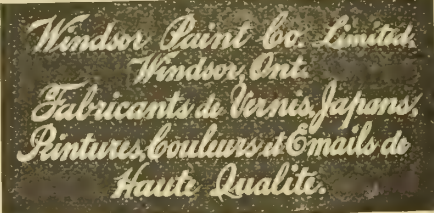 Windsor Paint Co. Limited.
Windsor, Ont.
Fabricants de Vernis, Japans,
Peintures, Couleurs et Emails de
Haute Qualite.